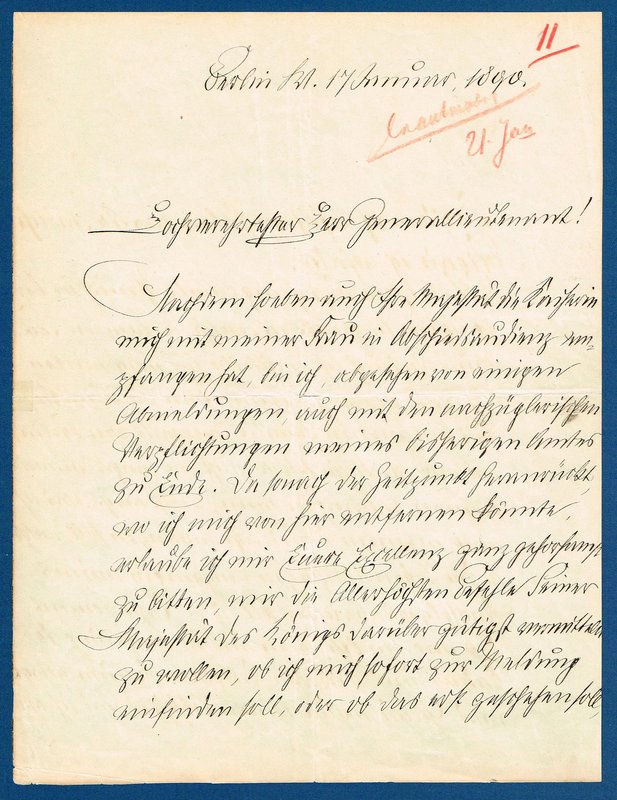 11
Berlin W. 17 Januar, 1890.
21. Jan
Hochverehrtester Herr Generallieutenant!
Nachdem soeben auch Ihre Majestät die Kaiserin
mich mit meiner Frau in Abschiedsaudienz em-
pfangen hat, bin ich, abgesehen von einigen
Abmeldungen, auch mit den nachzüglerischen
Verpflichtungen meines bisherigen Amtes
zu Ende. Da sonach der Zeitpunkt heranrückt,
wo ich mich von hier entfernen könnte,
erlaube ich mir Euere Excellenz ganz gehorsamst
zu bitten, mir die Allerhöchsten Befehle Seiner
Majestät des Königs darüber gütigst vermitteln
zu wollen, ob ich mich sofort zur Meldung
einfinden soll, oder ob das erst geschehen soll,